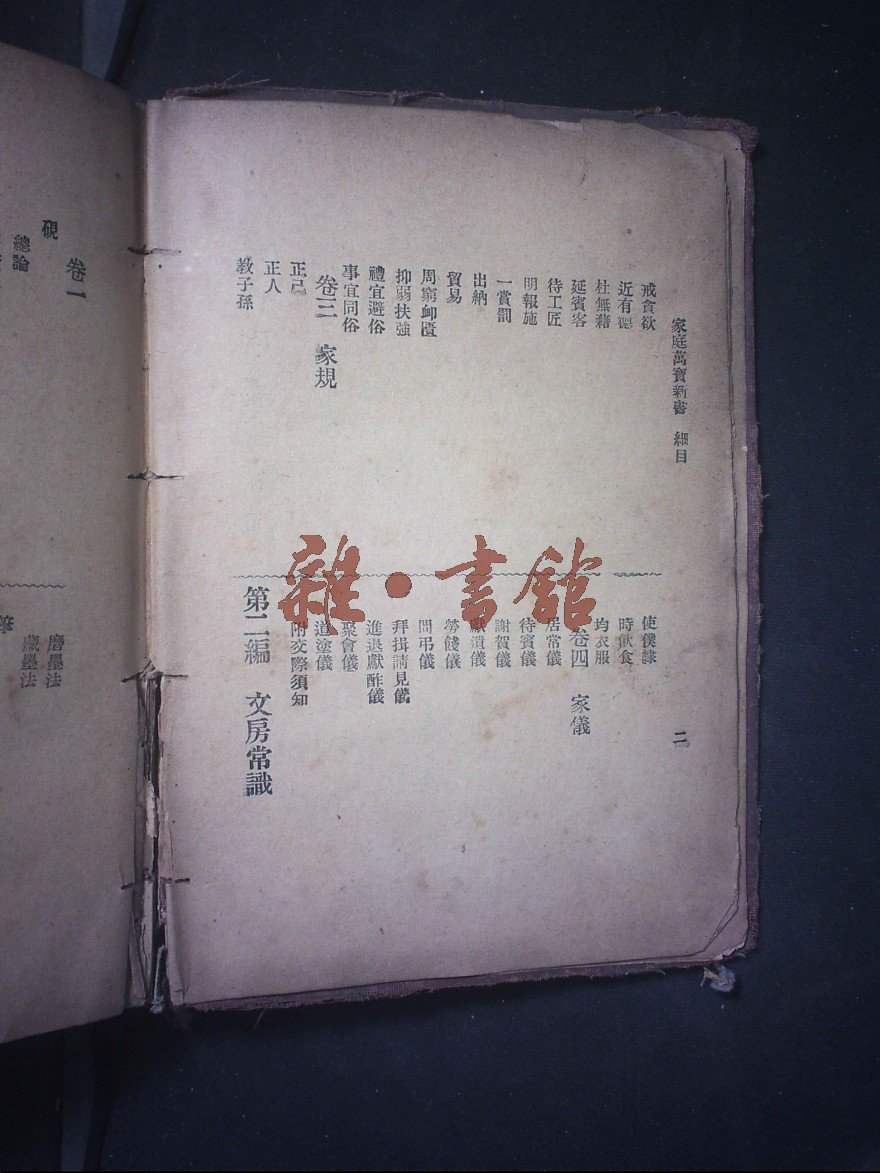 家庭萬寶新書 細目
二
戒貪欲
近有德
杜無藉
延賓客
待工匠
明報施
一賞罰
出納
貿易
周窮卹匱
抑弱扶強
禮宜避俗
事宜同俗
卷三 家規
正己
正人
教子孫
使僕隸
時飲食
均衣服
卷四 家儀
居常儀
待賓儀
謝賀儀
獻遺儀
勞餞儀
問弔儀
拜揖請見儀
進退獻酢儀
聚會儀
道塗儀
附交際須知
第二編 文房常識
卷一
硯
總論
磨墨法
藏墨法
雜·書館